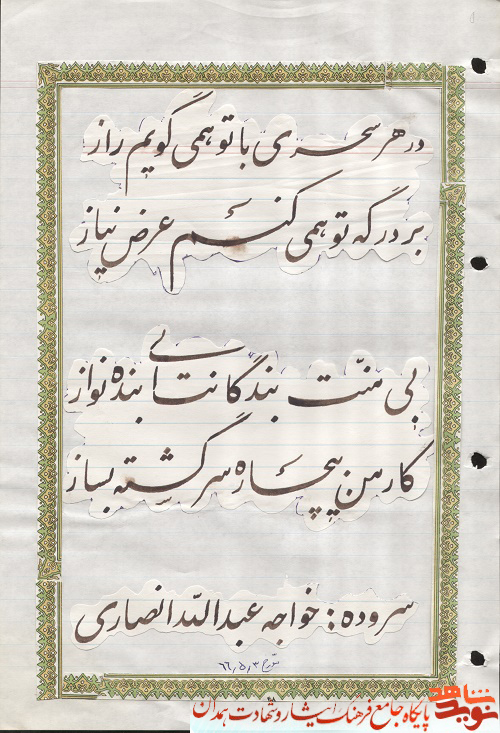 در هر سحری با تو همی گویم راز
بر درگه تو همی کنم عرض نیاز
بی منّت بندگانت ای بنده نواز
کار من بیچاره سرگشته بساز
سروده : خواجه عبدالله انصاری
۶۶/۵/۳
نوید شاهد
پایگاه جامع فرهنگ ایثار و شهادت همدان